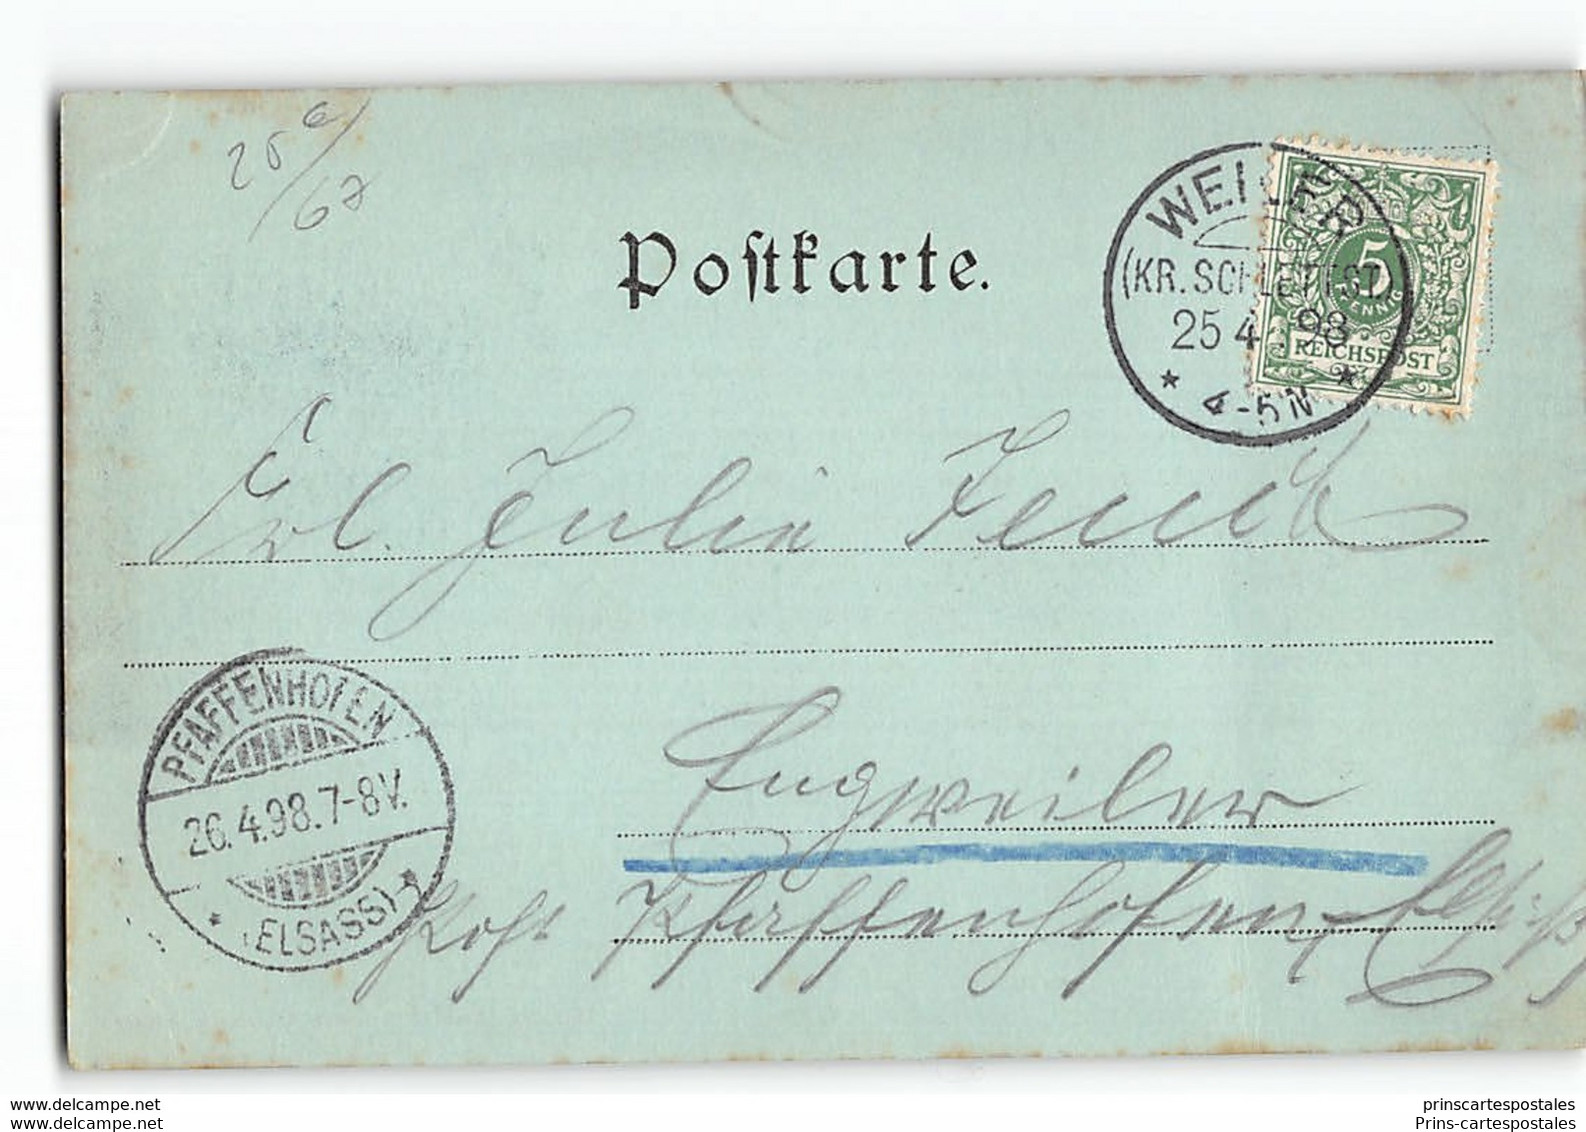 25 6/67
Postkarte.
WEILER
(KR. SCHLETTST.)
25 4 . 98
* 4-5 N *
5
PFENNIG
REICHSPOST
Frl. Julia
PFAFFENHOFEN
26.4.98.7-8V.
* (ELSASS) *
Engweiler
Post Pfaffenhofen, Elsaß
www.delcampe.net
princartespostales
Prins-cartespostales